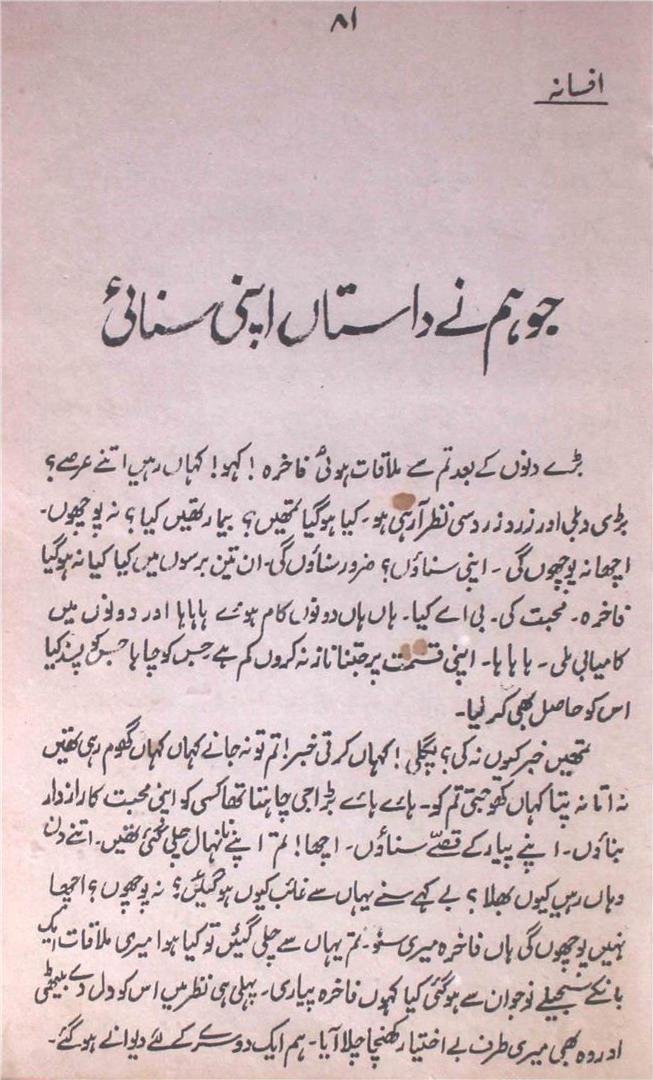 ۸۱
افسانہ
جو ہم نے داستاں اپنی سنائی
بڑے دنوں کے بعد تم سے ملاقات ہوئی فاخرہ! کہو! کہاں رہیں اتنے عرصے؟
بڑی دبلی اور زرد زرد سی نظر آرہی ہو۔ کیا ہوگیا تمھیں؟ بیمار تھیں کیا؟ نہ پوچھوں۔
اچھا نہ پوچھوں گی۔ اپنی سناؤں؟ ضرور سناؤں گی۔ ان تین برسوں میں کیا کیا نہ ہوگیا
فاخرہ۔ محبت کی۔ بی اے کیا۔ ہاں ہاں دونوں کام ہوئے ہاہاہا اور دونوں میں
کامیابی ملی۔ ہا ہا ہا۔ اپنی قسمت پر جتنا ناز نہ کروں کم ہے جس کو چاہا جس کو پسند کیا
اس کو حاصل بھی کر لیا۔
تمھیں خبر کیوں نہ کی؟ پگلی! کہاں کرتی خبر! تم تو نہ جانے کہاں کہاں گھوم رہی تھیں
نہ اتا نہ پتا کہاں کھوجتی تم کو۔ ہائے ہائے بڑا جی چاہتا تھا کسی کو اپنی محبت کا رازدار
بناؤں۔ اپنے پیار کے قصّے سناؤں۔ اچھا! تم اپنے نانہال چلی گئی تھیں۔ اتنے دن
وہاں رہیں کیوں بھلا؟ بے کہے سنے یہاں سے غائب کیوں ہوگئیں؟ نہ پوچھوں؟ اچھا
نہیں پوچھوں گی ہاں فاخرہ میری سنو۔ تم یہاں سے چلی گئیں تو کیا ہوا میری ملاقات ایک
بانکے سجیلے نوجوان سے ہوگئی کیا کہوں فاخرہ پیاری۔ پہلی ہی نظر میں اس کو دل دے بیٹھی
اور وہ بھی میری طرف بے اختیار کھنچا چلا آیا۔ ہم ایک دوسرے کے لئے دیوانے ہوگئے۔